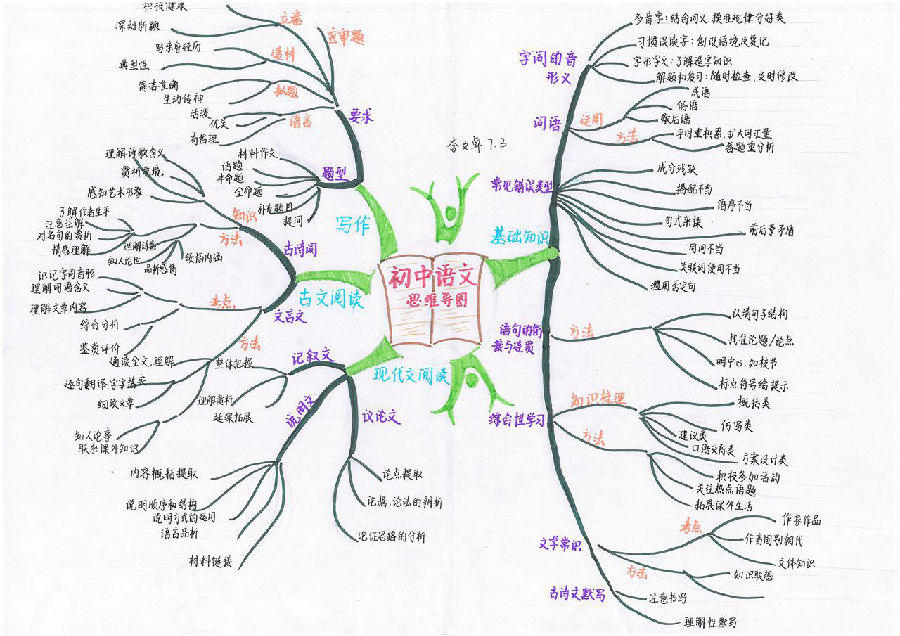 初中语文
思维导图
7.3
写作
要求
立意
积极健康
深刻新颖
选材
典型性
拟题
简洁准确
生动传神
语言
优美
有哲理
审题
题型
材料作文
话题
半命题
全命题
补充题目
提问
古文阅读
古诗词
知识
理解诗歌含义
赏析意境
感知艺术形象
方法
了解作者生平
注意注解
对名句的赏析
情感理解
知人论世
品析感情
领悟内涵
文言文
考点
识记字词音形
理解词语含义
理解文章内容
综合分析
鉴赏评价
方法
通读全文,理解
逐句翻译,字字落实
细读文章
知人论事
联系课外知识
现代文阅读
记叙文
整体把握
理解赏析
延展拓展
说明文
内容概括提取
说明顺序和结构
说明方式的运用
语言品析
材料链接
议论文
论点提取
论据,论法的辨析
论证思路的分析
基础知识
字词的音
形义
多音字:结合词义 摸准规律分好类
习惯误读字:创设语境反复记
形似字义:了解造字知识
解题和复习:随时检查,及时修改
词语
运用
成语
俗语
歇后语
方法
平时重积累,扩大词汇量
答题重分析
常见错误类型
成分残缺
搭配不当
语序不当
句式杂糅
前后矛盾
用词不当
关联词使用不当
滥用否定句
语句的衔
接与连贯
方法
认清句子结构
抓住论题/论点
瞻前顾后,如枝节
标点符号给提示
综合性学习
知识梳理
概括类
仿写类
建议类
口语交际类
方案设计类
方法
积极参加活动
关注热点话题
拓展课外生活
文学常识
考点
作家作品
作者国别朝代
文体知识
方法
知识联想
古诗文默写
注意书写
理解性默写